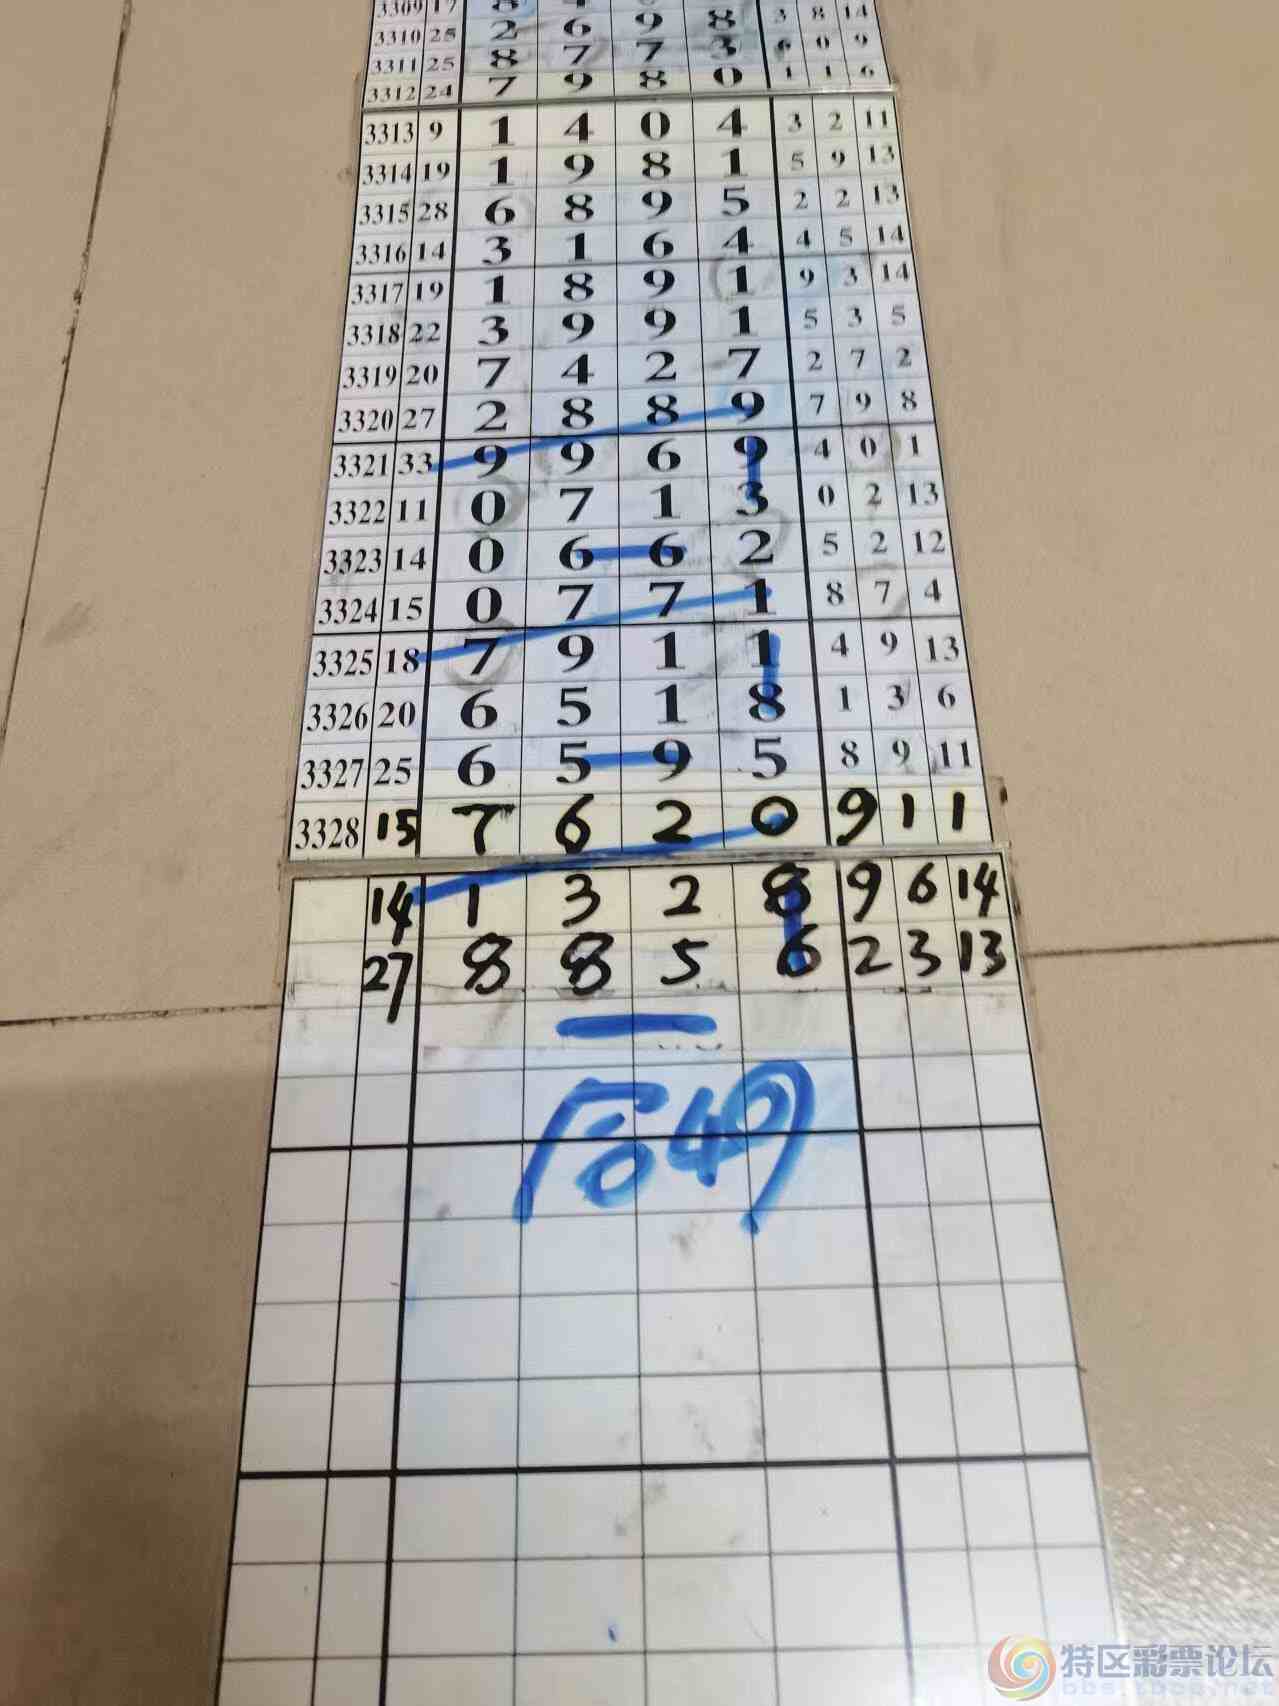 3309 17 8
3310 25 2 6 9 8 3 8 14
3311 25 8 7 7 3 6 0 9
3312 24 7 9 8 0 1 1 6
3313 9 1 4 0 4 3 2 11
3314 19 1 9 8 1 5 9 13
3315 28 6 8 9 5 2 2 13
3316 14 3 1 6 4 4 5 14
3317 19 1 8 9 1 9 3 14
3318 22 3 9 9 1 5 3 5
3319 20 7 4 2 7 2 7 2
3320 27 2 8 8 9 7 9 8
3321 33 9 9 6 9 4 0 1
3322 11 0 7 1 3 0 2 13
3323 14 0 6 6 2 5 2 12
3324 15 0 7 7 1 8 7 4
3325 18 7 9 1 1 4 9 13
3326 20 6 5 1 8 1 3 6
3327 25 6 5 9 5 8 9 11
3328 15 7 6 2 0 9 1 1
14 1 3 2 8 9 6 14
27 8 8 5 6 2 3 13
合49
特区彩票论坛
bbs.tbcp.net